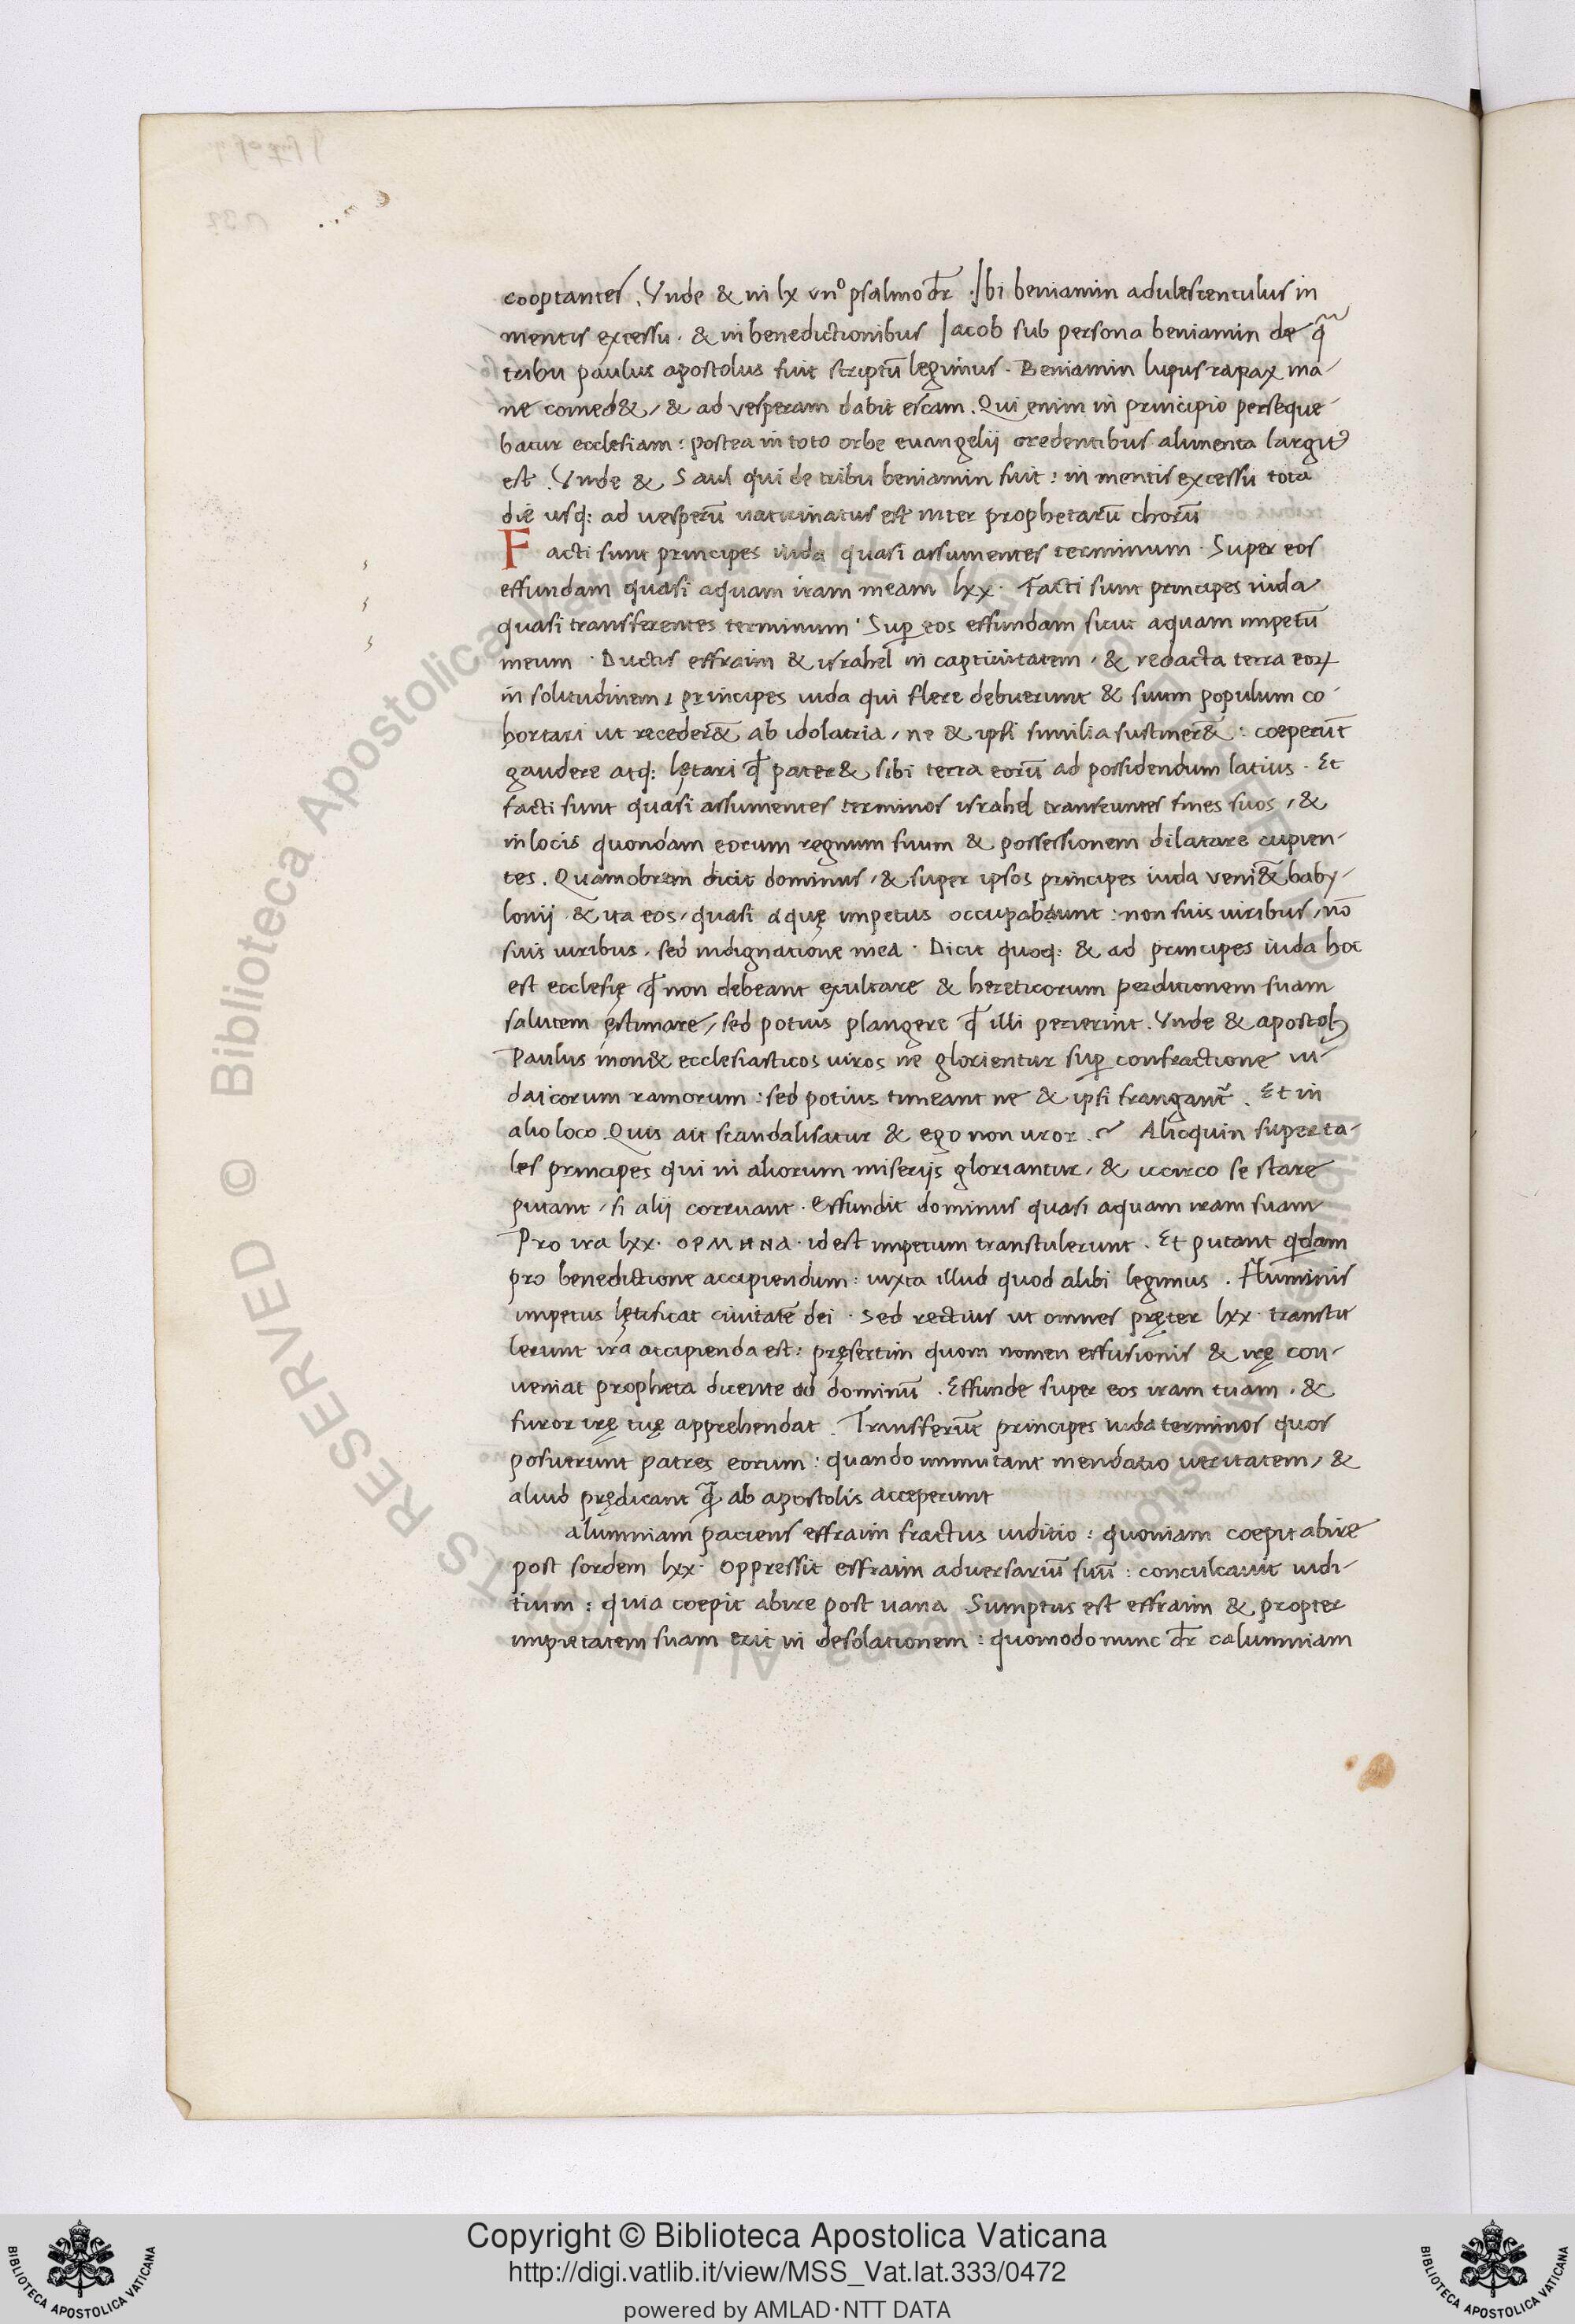 cooptantes. Vnde & in lx vn° psalmo dr̄. Ibi beniamin adulescentulus in
mentis excessu. & in benedictionibus Iacob sub persona beniamin de q̄
tribu paulus apostolus fuit scriptū legimus. Beniamin lupus rapax ma-
ne comed&, & ad vesperam dabit escam. Qui enim in principio perseque-
batur ecclesiam: postea in toto orbe euangelij credentibus alimenta largit᷒
est. Vnde & Saul qui de tribu beniamin fuit: in mentis excessu tota
die usq: ad uesperū uaticinatus est inter prophetarū chorū
Facti sunt principes iuda quasi assumentes terminum. Super eos
effundam quasi aquam iram meam lxx. Facti sunt principes iuda
quasi transferentes terminum. Sup̱ eos effundam sicut aquam impetū
meum. Ductis effraim & israhel in captiuitatem, & redacta terra eoꝝ
in solitudinem, principes iuda qui flere debuerunt & suum populum co-
hortari ut receder&̄ ab idolatria, ne & ipsi similia sustiner&̄: coeperūt
gaudere atq: lętari ꝙ pater& sibi terra eorū ad possidendum latius. Et
facti sunt quasi assumentes terminos israhel transeuntes fines suos, &
in locis quondam eorum regnum suum & possessionem dilatare cupien-
tes. Quamobrem dicit dominus, & super ipsos principes iuda veni&̄ baby-
lonij & ita eos, quasi aquę impetus occupabunt: non suis uiribus, nō
suis uiribus, sed indignatione mea. Dicit quoq: & ad principes iuda hoc
est ecclesię ꝙ non debeant exultare & hereticorum perditionem suam
salutem ęstimare, sed potius plangere ꝙ illi perierint. Vnde & apostolꝰ
Paulus mon& ecclesiasticos uiros ne glorientur sup̱ confractione iu-
daicorum ramorum: sed potius timeant ne & ipsi frangant᷑. Et in
alio loco. Quis ait scandalisatur & ego non uror. Alioquin super ta-
les principes qui in aliorum miserijs gloriantur, & iccirco se stare
putant, si alij corruant. Effundit dominus quasi aquam iram suam
Pro ira lxx. ΟΡΜΗΜΑ. id est impetum transtulerunt. Et putant q̇dam
pro benedictione accipiendum: iuxta illud quod alibi legimus. Fluminis
impetus lętificat ciuitatē dei. Sed rectius ut omnes pręter lxx. transtu
lerunt ira accipienda est: pręsertim quom nomen effusionis & irę con-
ueniat propheta dicente ad dominū. Effunde super eos iram tuam, &
furor irę tuę apprehendat. Transferūt principes iuda terminos quos
posuerunt patres eorum: quando immutant mendatio ueritatem, &
aliud prędicant q̄ ab apostolis acceperunt
alumniam patiens effraim fractus iuditio: quoniam coepit abire
post sordem lxx. Oppressit effraim aduersariū suū: conculcauit iudi-
tium: quia coepit abire post uana Sumptus est effraim & propter
impietatem suam erit in desolationem: quomodo nunc dr̄ calumniam
Copyright © Biblioteca Apostolica Vaticana
http://digi.vatlib.it/view/MSS_Vat.lat.333/0472
powered by AMLAD·NTT DATA